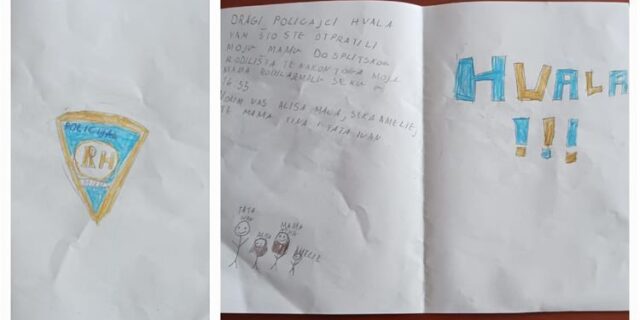 POLICIJA
RH
DRAGI POLICAJCI HVALA
VAM ŠTO STE OTPRATILI
MOJU MAMU DO SPLITSKOG
RODILIŠTA TE NAKON TOGA MOJA
MAMA RODILA
16 55
VOLIM VAS ALISA MALA, SEKA AMELIE,
TE MAMA TINA I TATA IVAN.
TATA
IVAN
MAMA
AMELIE
HVALA
!!!